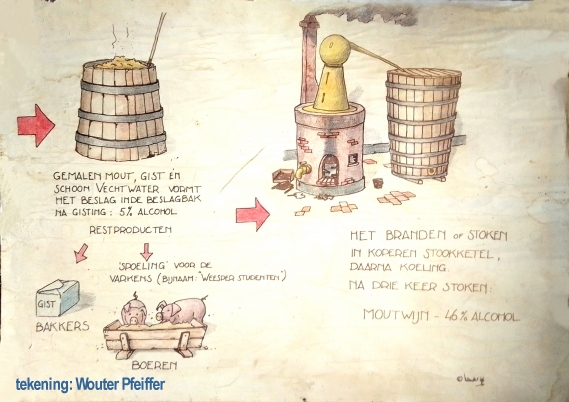 GEMALEN MOUT, GIST EN
SCHOON VECHTWATER VORMT
HET BESLAG IN DE BESLAGBAK
NA GISTING: 5% ALCOHOL
RESTPRODUCTEN
'SPOELING' VOOR DE
VARKENS (BIJNAAM: "WEESPER STUDENTEN")
GIST
BAKKERS
BOEREN
HET BRANDEN OF STOKEN
IN KOPEREN STOOKKETEL,
DAARNA KOELING.
NA DRIE KEER STOKEN:
MOUTWIJN - 46% ALCOHOL
tekening: Wouter Pfeiffer